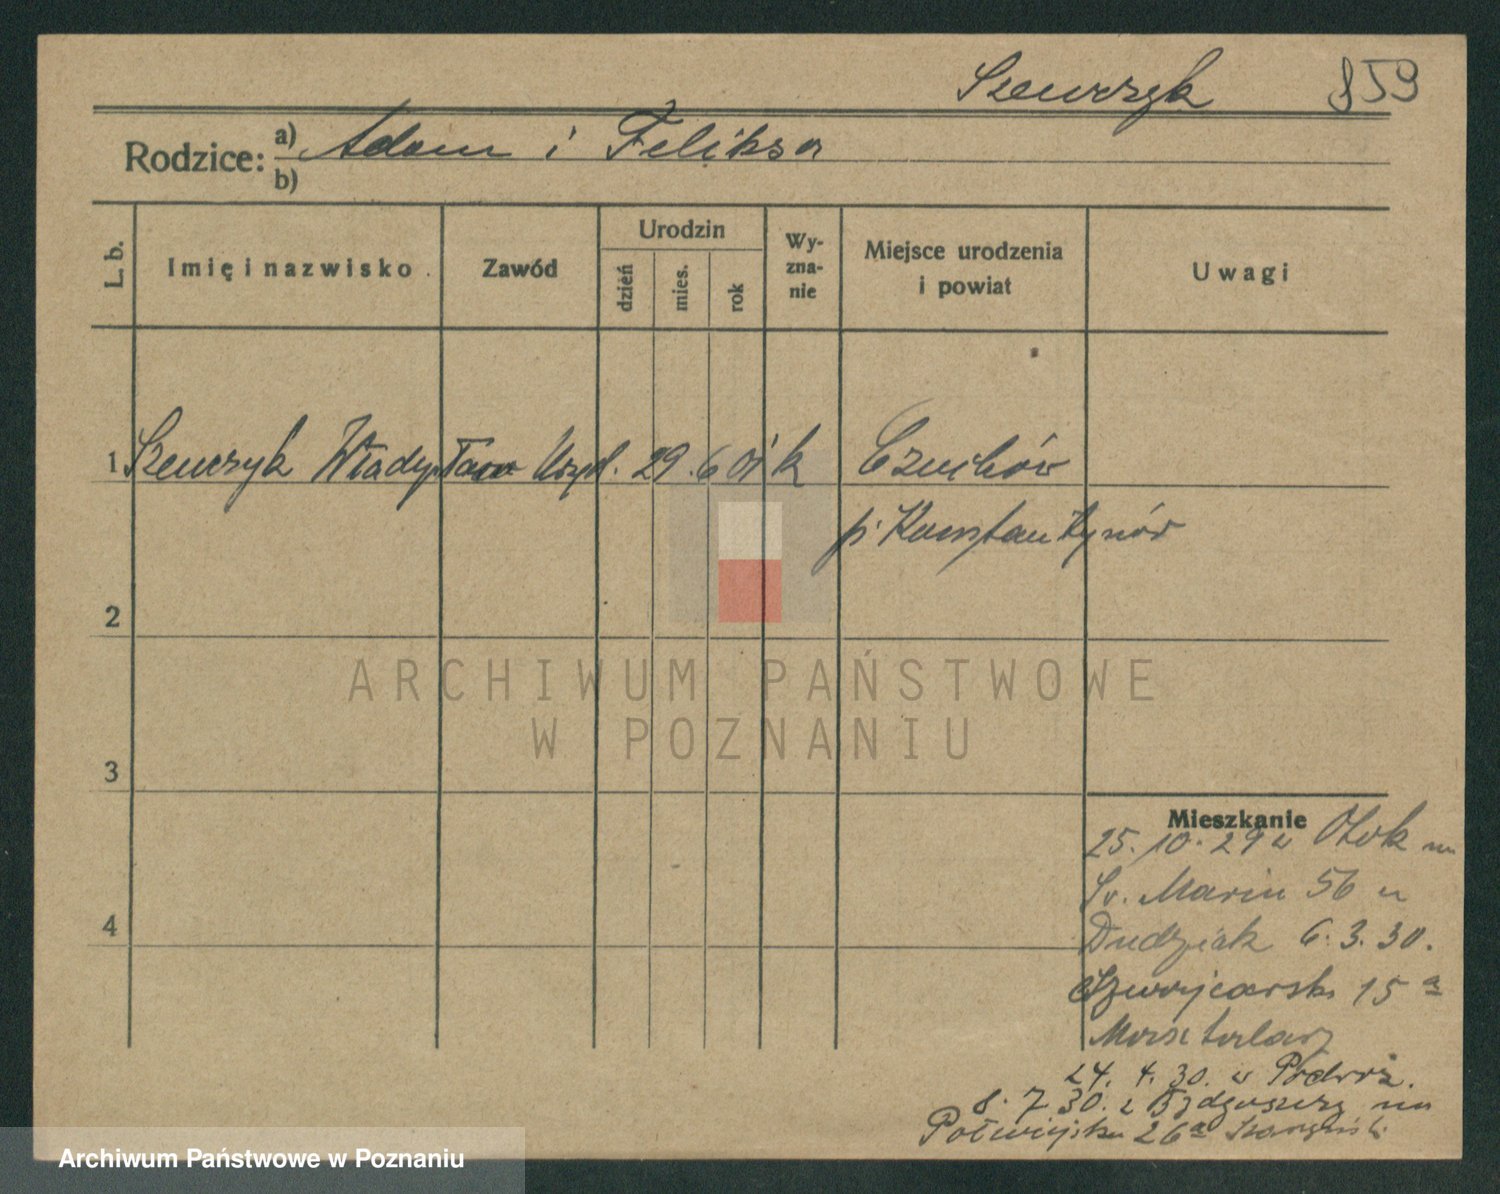 Szewczyk 859
Rodzice: a) Adam i Feliksa
b)
L. b.
Imię i nazwisko
Zawód
Urodzin
dzień
mies.
rok
Wy-
zna-
nie
Miejsce urodzenia
i powiat
Uwagi
1 Szewczyk Władysław Urzęd. 29. 6 01 k Czuchów
p. Konstantynów
2
3
4
ARCHIWUM PAŃSTWOWE
W POZNANIU
Mieszkanie
25. 10. 29 w Otok na
Św. Marcin 56 u
Dudziak 6. 3. 30.
Szwajcarska 15 a
24. 4. 30. w Podróż.
8. 7 30. z Bydgoszczy na
Półwiejska 26a
Archiwum Państwowe w Poznaniu